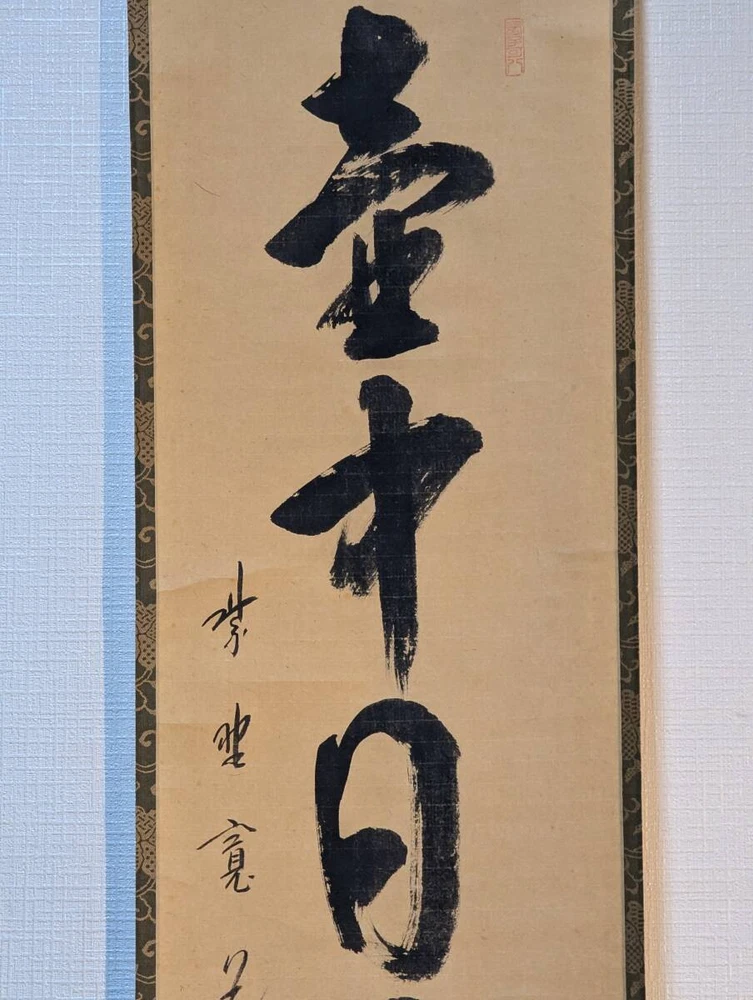 壷中日
紫野寛